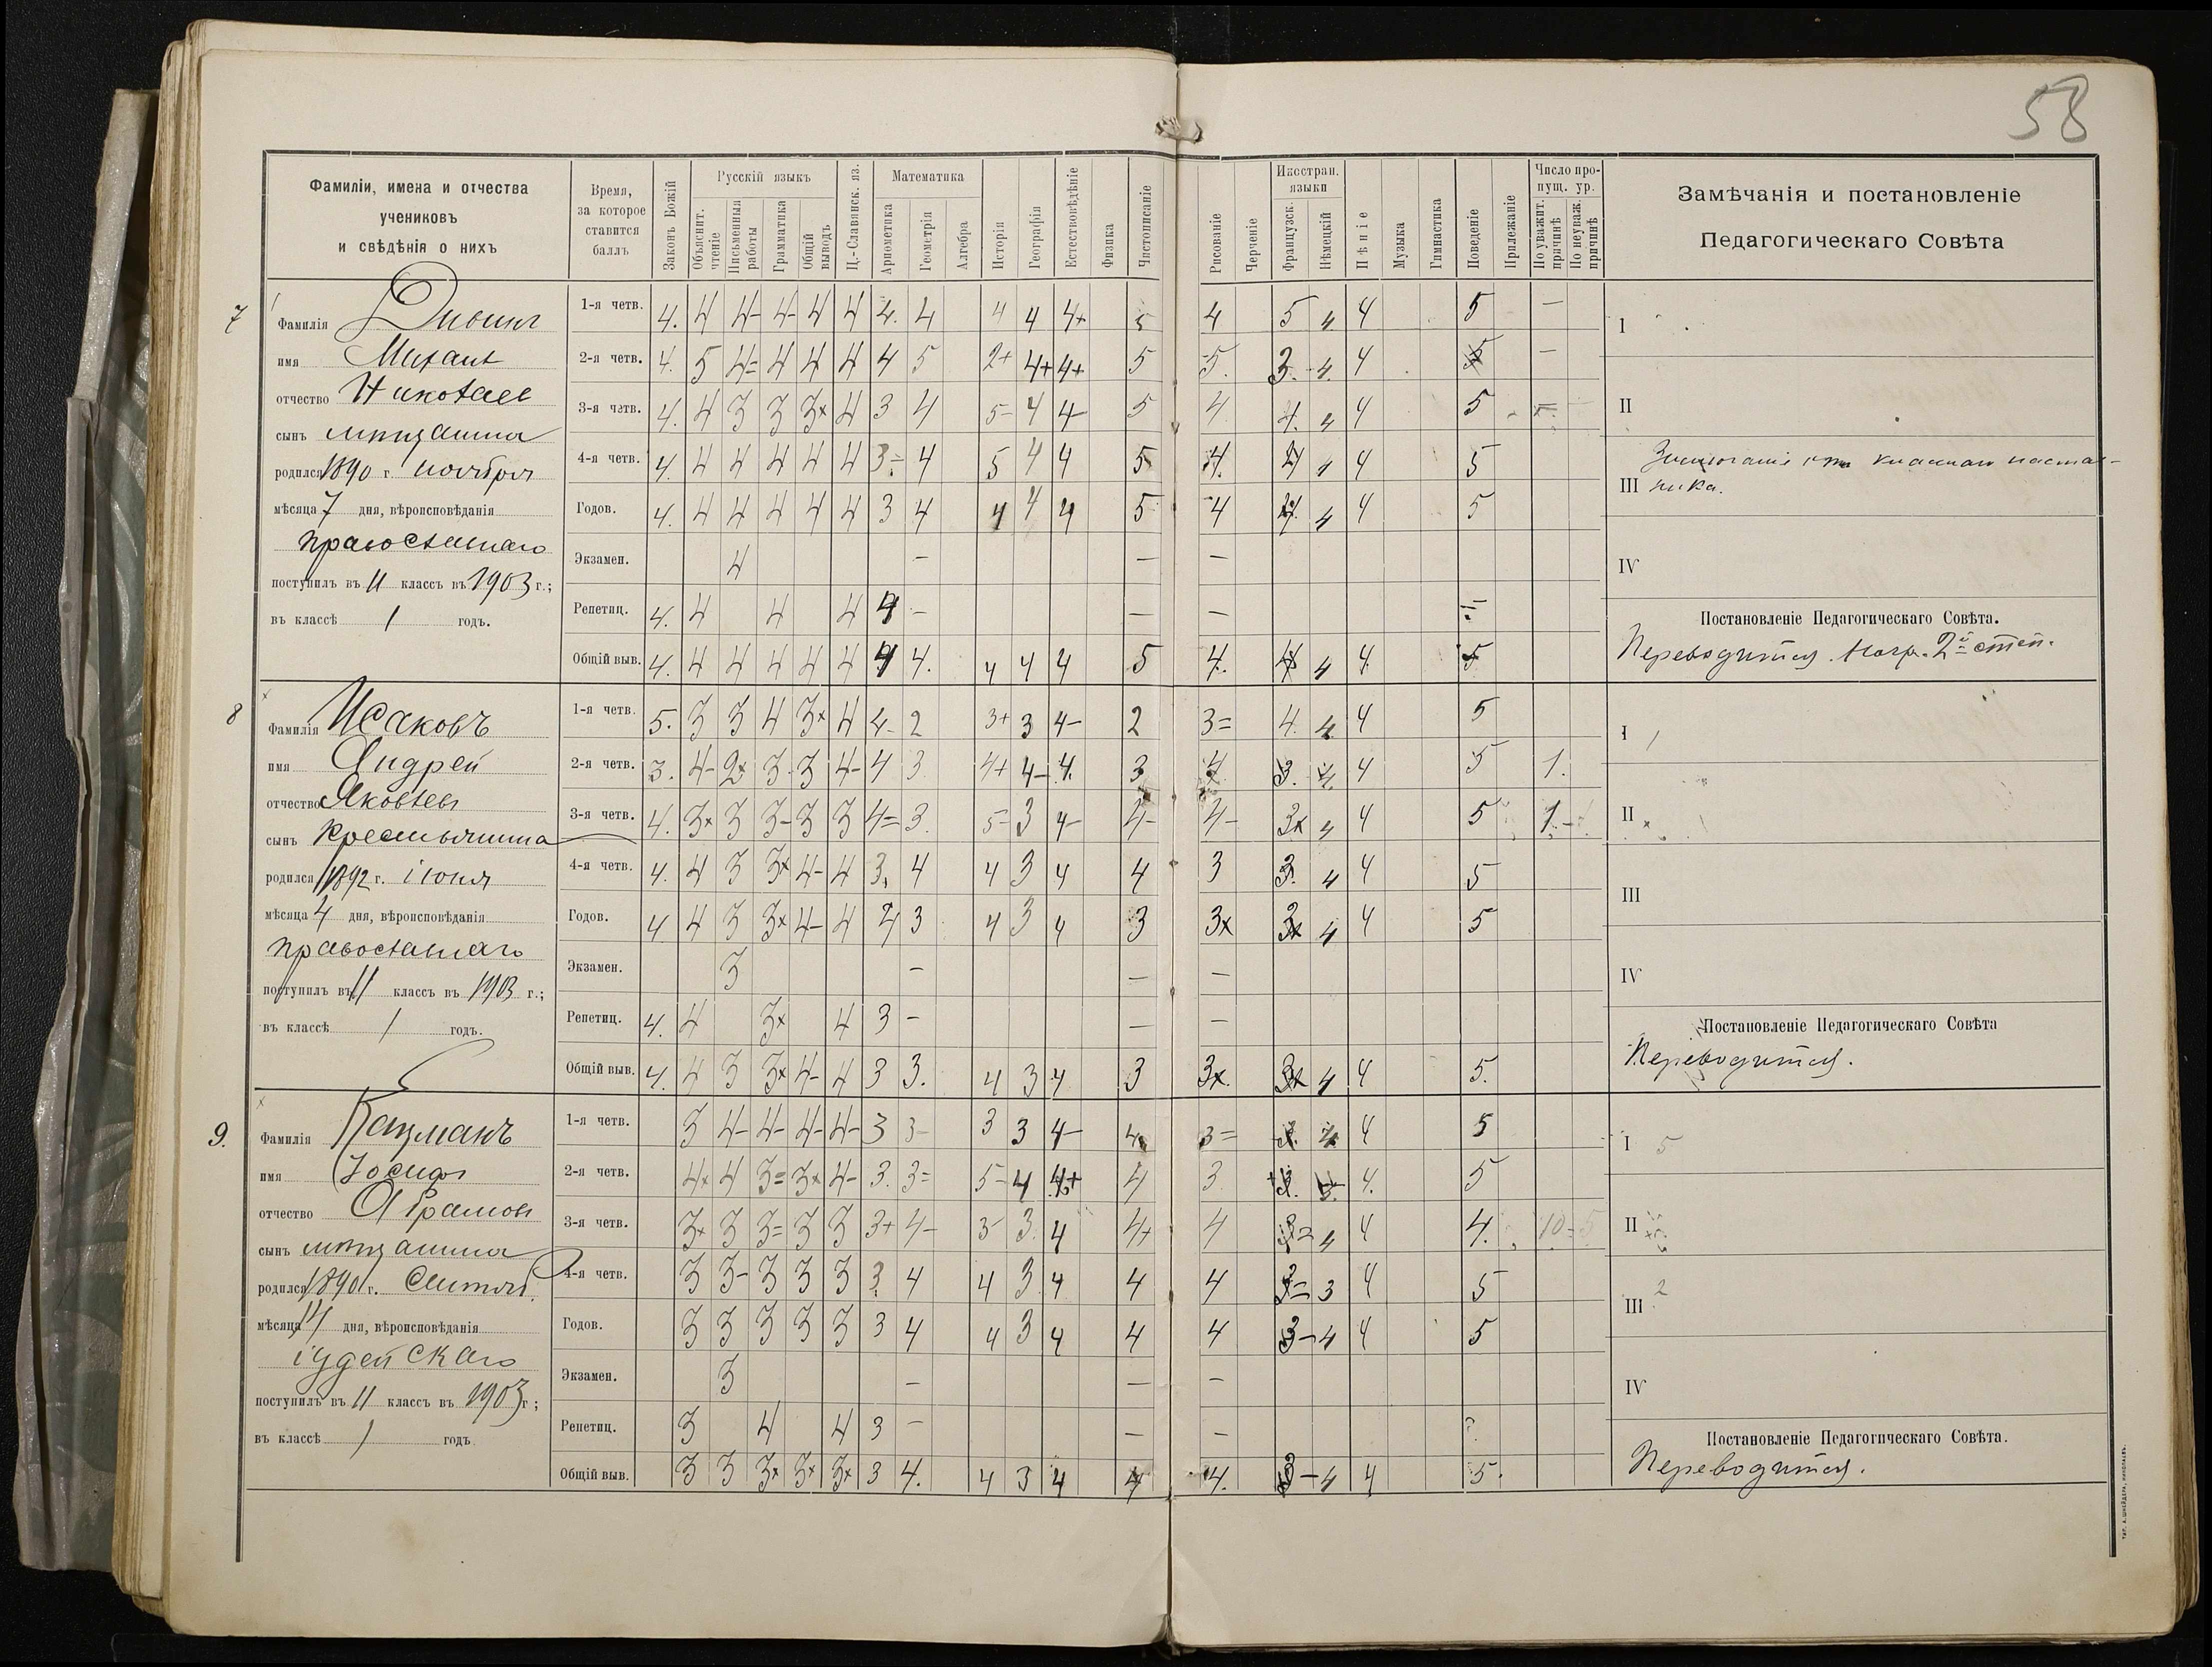 58
Фамиліи, имена и отчества
учениковъ
и свѣдѣнія о нихъ
Время,
за которое
ставится
баллъ
Законъ Божій
Русскій языкъ
Объяснит. чтеніе
Письменныя работы
Грамматика
Общій выводъ
Ц.-Славянск. яз.
Математика
Ариѳметика
Геометрія
Алгебра
Исторія
Географія
Естествовѣдѣніе
Физика
Чистописаніе
Рисованіе
Черченіе
Иностран. языки
Французск.
Нѣмецкій
Пѣніе
Музыка
Гимнастика
Поведеніе
Прилежаніе
Число пропущ. ур.
По уважит. причинѣ
По неуваж. причинѣ
Замѣчанія и постановленіе
Педагогическаго Совѣта
7
Фамилія
имя Михаилъ
отчество Николаев
сынъ мѣщанина
родился 1890 г. ноября
мѣсяца 7 дня, вѣроисповѣданія
православнаго
поступилъ въ II классъ въ 1903 г.;
въ классѣ 1 годъ.
1-я четв. 4. 4 4- 4- 4 4 4. 4 4 4 4+ 5 4 5 4 4 5 —
2-я четв. 4. 5 4= 4 4 4 4 5 2+ 4+ 4+ 5 5. 3. 4. 4 5 —
3-я четв. 4. 4 3 3 3× 4 3 4 5- 4 4- 5 4 4. 4 4 5
4-я четв. 4. 4 4 4 4 4 3= 4 5 4 4 5 4. 4 4 4 5
Годов. 4. 4 4 4 4 4 3 4 4 4 4 5 4 4 4 4 5
Экзамен. 4 — — —
Репетиц. 4. 4 4 4 4 — — —
Общій выв. 4. 4 4 4 4 4 4 4. 4 4 4 5 4. 4 4 4 5
I
II
III
ника.
IV
Постановленіе Педагогическаго Совѣта.
Переводится. Нагр. 2й степ.
8
Фамилія Исаковъ
имя Андрей
отчество Яковлевъ
сынъ крестьянина
родился 1892 г. іюня
мѣсяца 4 дня, вѣроисповѣданія
православнаго
поступилъ въ II классъ въ 1903 г.;
въ классѣ 1 годъ.
1-я четв. 5. 3 3 4 3× 4 4- 2 3+ 3 4- 2 3= 4. 4. 4 5
2-я четв. 3. 4- 2× 3- 3 4- 4 3 4+ 4- 4. 3 4 3. 4 4 5 1.
3-я четв. 4. 3× 3 3- 3 3 4= 3. 5- 3 4- 4- 4- 3× 4 4 5 1-
4-я четв. 4. 4 3 3× 4- 4 3. 4 4 3 4 4 3 3. 4 4 5
Годов. 4. 4 3 3× 4- 4 4 3 4 3 4 3 3× 3× 4 4 5
Экзамен. 3 — — —
Репетиц. 4. 4 3× 4 3 — — —
Общій выв. 4. 4 3 3× 4- 4 3 3. 4 3 4 3 3×. 3× 4 4 5.
I
II
III
IV
Постановленіе Педагогическаго Совѣта
Переводится.
9.
Фамилія Кацманъ
имя Іосифъ
отчество Абрамовъ
сынъ мѣщанина
родился 1890 г. Сентяб.
мѣсяца 14 дня, вѣроисповѣданія
іудейскаго
поступилъ въ II классъ въ 1903 г;
въ классѣ 1 годъ
1-я четв. 3 4- 4- 4- 4- 3 3- 3 3 4- 4 3= 3. 4 4 5
2-я четв. 4× 4 3= 3× 4- 3. 3= 5- 4 4+ 4 3 4. 5
3-я четв. 3× 3 3= 3 3 3+ 4- 3- 3. 4 4+ 4 3= 4 4 4. 10 5
4-я четв. 3 3- 3 3 3 3. 4 4 3 4 4 4 3= 3 4 5
Годов. 3 3 3 3 3 3 4 4 3 4 4 4 3- 4 4 5
Экзамен. 3 — — —
Репетиц. 3 4 4 3 — — —
Общій выв. 3 3 3× 3× 3× 3 4. 4 3 4 4 4. 3- 4 4 5.
I 5
II
III 2
IV
Постановленіе Педагогическаго Совѣта.
Переводится.
ТИП. А. ШНЕЙДЕРА, НИКОЛАЕВЪ.